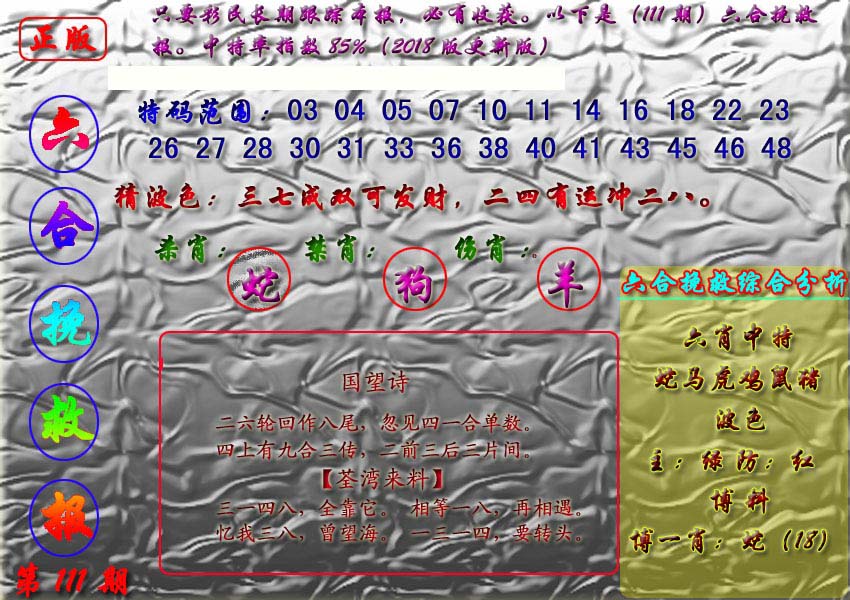 正版
只要彩民长期跟踪本报，必有收获。以下是（111期）六合挽救
报。中特率指数85%（2018版更新版）
六
合
挽
救
报
第111期
特码范围：03 04 05 07 10 11 14 16 18 22 23
26 27 28 30 31 33 36 38 40 41 43 45 46 48
猜波色：三七成双可发财，二四有运冲二八。
杀肖：蛇 禁肖：狗 伤肖：羊
国望诗
二六轮回作八尾，忽见四一合单数。
四上有九合三传，二前三后三片间。
【荃湾来料】
三一四八，全靠它。 相等一八，再相遇。
忆我三八，曾望海。 一三一四，要转头。
六合挽救综合分析
六肖中特
蛇马虎鸡鼠猪
波色
主：绿防：红
博料
博一肖：蛇（18）